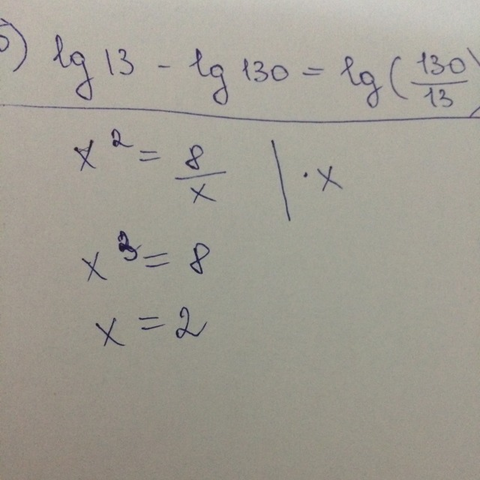 б) lg 13 - lg 130 = lg (130/13)
x² = 8/x | · x
x³ = 8
x = 2